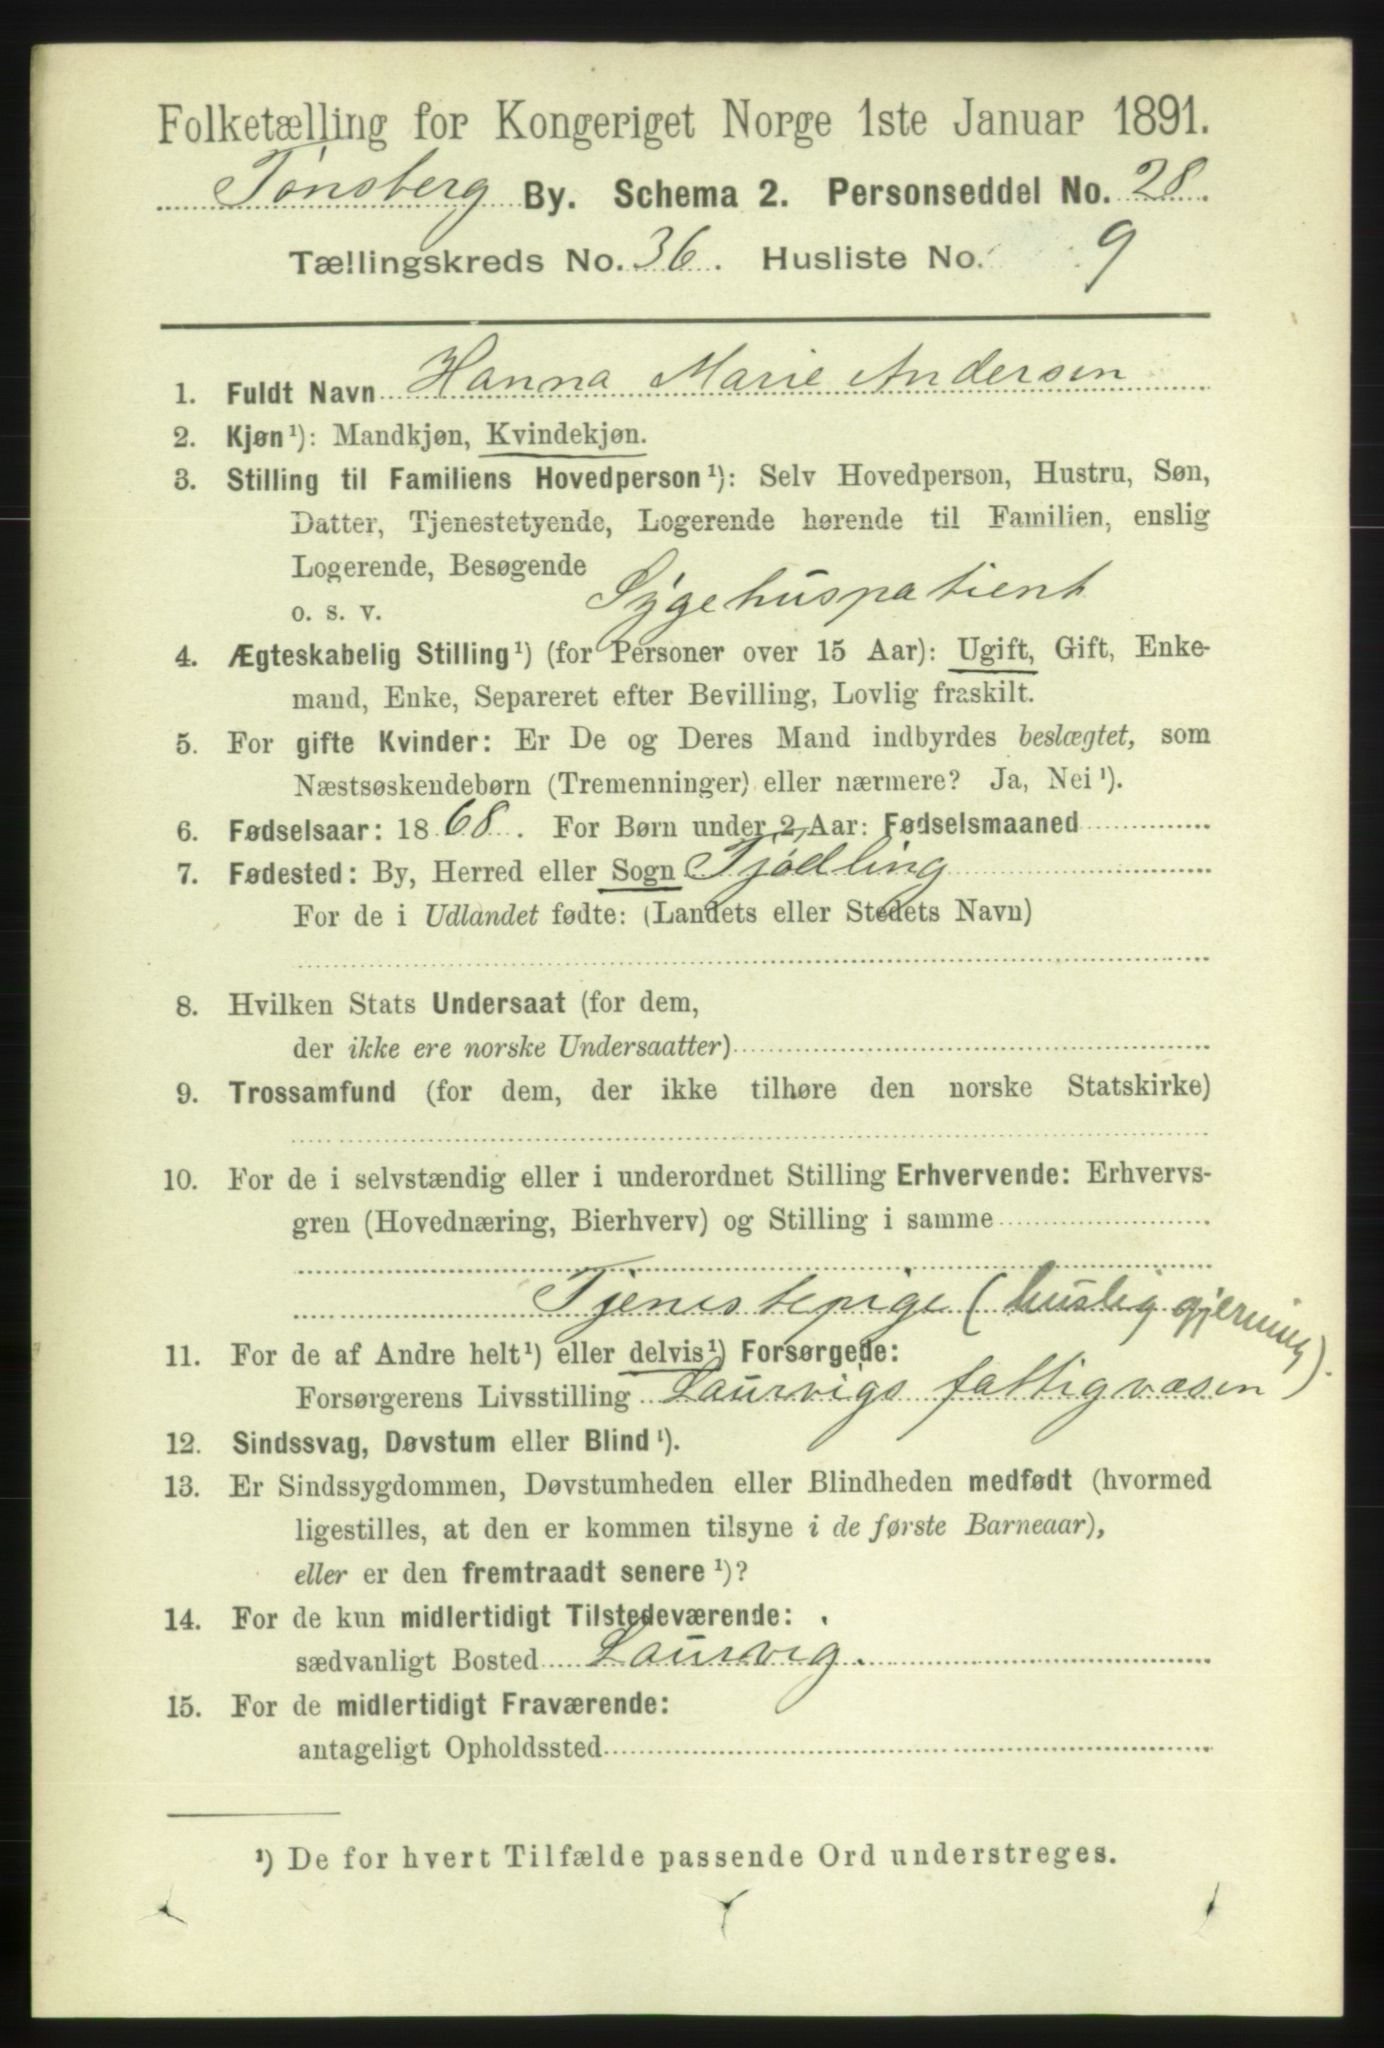 Folketælling for Kongeriget Norge 1ste Januar 1891.
Tønsberg By. Schema 2. Personseddel No. 28.
Tællingskreds No. 36. Husliste No. 9
1. Fuldt Navn Hanna Marie Andersen
2. Kjøn¹): Mandkjøn, Kvindekjøn.
3. Stilling til Familiens Hovedperson¹): Selv Hovedperson, Hustru, Søn,
Datter, Tjenestetyende, Logerende hørende til Familien, enslig
Logerende, Besøgende
o. s. v. Sygehuspatient
4. Ægteskabelig Stilling¹) (for Personer over 15 Aar): Ugift, Gift, Enke-
mand, Enke, Separeret efter Bevilling, Lovlig fraskilt.
5. For gifte Kvinder: Er De og Deres Mand indbyrdes beslægtet, som
Næstsøskendebørn (Tremenninger) eller nærmere? Ja, Nei¹).
6. Fødselsaar: 1868. For Børn under 2 Aar: Fødselsmaaned
7. Fødested: By, Herred eller Sogn Tjødling
For de i Udlandet fødte: (Landets eller Stedets Navn)
8. Hvilken Stats Undersaat (for dem,
der ikke ere norske Undersaatter)
9. Trossamfund (for dem, der ikke tilhøre den norske Statskirke)
10. For de i selvstændig eller i underordnet Stilling Erhvervende: Erhvervs-
gren (Hovednæring, Bierhverv) og Stilling i samme
Tjenestepige (huslig gjerning).
11. For de af Andre helt¹) eller delvis¹) Forsørgede:
Forsørgerens Livsstilling Laurvigs fattigvæsen
12. Sindssvag, Døvstum eller Blind¹).
13. Er Sindssygdommen, Døvstumheden eller Blindheden medfødt (hvormed
ligestilles, at den er kommen tilsyne i de første Barneaar),
eller er den fremtraadt senere¹)?
14. For de kun midlertidigt Tilstedeværende:
sædvanligt Bosted Laurvig.
15. For de midlertidigt Fraværende:
antageligt Opholdssted
¹) De for hvert Tilfælde passende Ord understreges.